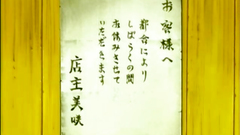 お客様へ
都合により
しばらくの間
お休みさせて
いただきます
店主美咲